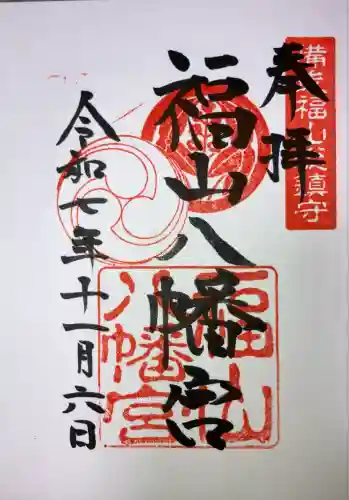 奉拝
備後福山城鎮守
福山八幡宮
福山八幡宮
令和七年十一月六日